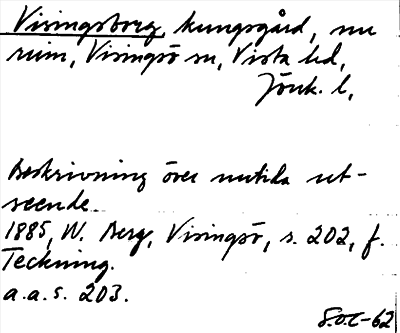 Visingsborg, kungsgård, nu
ruin, Visingsö sn, Vista hd,
Jönk. l,
Beskrivning över nutida ut-
seende.
1885, W. Berg, Visingsö, s. 202, f.
Teckning.
a.a. s. 203.
S.O.C-62